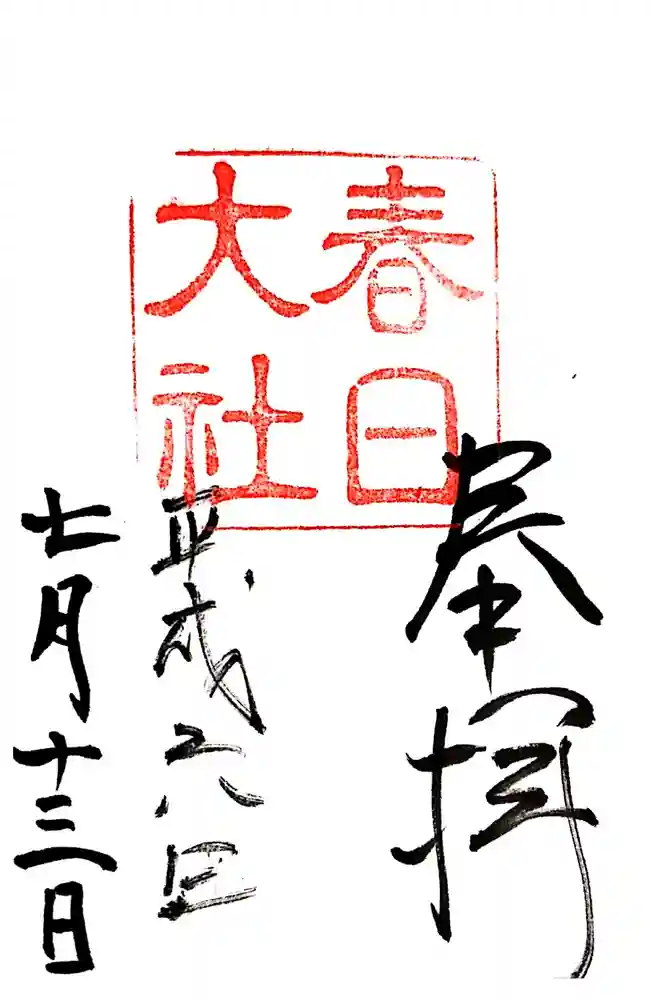 奉拝
春日
大社
平成六年
七月十三日